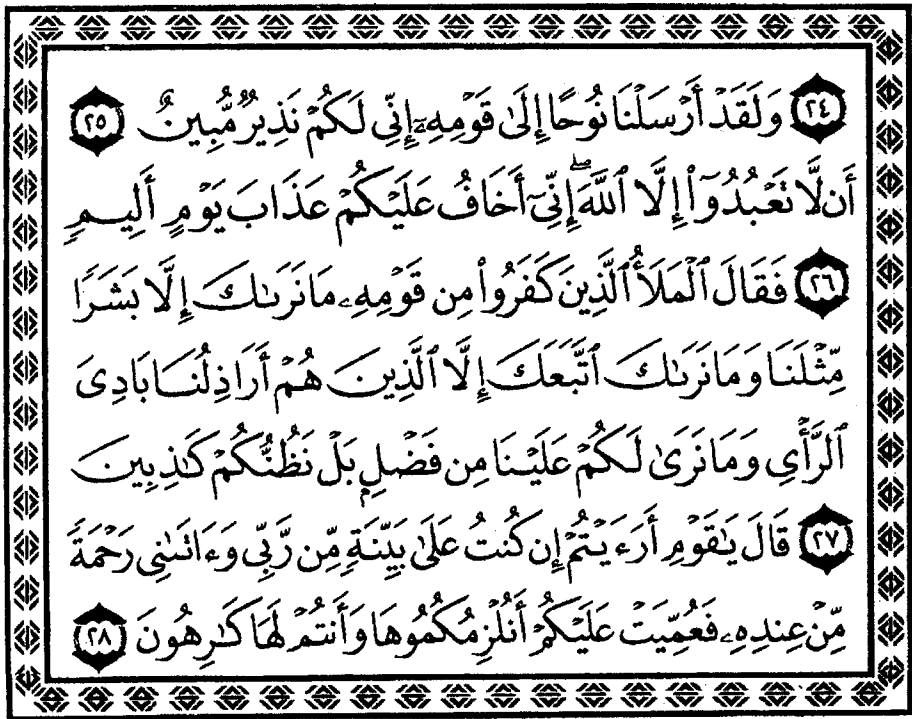 ٢٤ وَلَقَدْ أَرْسَلْنَا نُوحًا إِلَىٰ قَوْمِهِۦٓ إِنِّى لَكُمْ نَذِيرٌ مُّبِينٌ ٢٥
أَن لَّا تَعْبُدُوٓا۟ إِلَّا ٱللَّهَ ۖ إِنِّىٓ أَخَافُ عَلَيْكُمْ عَذَابَ يَوْمٍ أَلِيمٍ
٢٦ فَقَالَ ٱلْمَلَأُ ٱلَّذِينَ كَفَرُوا۟ مِن قَوْمِهِۦ مَا نَرَىٰكَ إِلَّا بَشَرًا
مِّثْلَنَا وَمَا نَرَىٰكَ ٱتَّبَعَكَ إِلَّا ٱلَّذِينَ هُمْ أَرَاذِلُنَا بَادِىَ
ٱلرَّأْىِ وَمَا نَرَىٰ لَكُمْ عَلَيْنَا مِن فَضْلٍۭ بَلْ نَظُنُّكُمْ كَٰذِبِينَ
٢٧ قَالَ يَٰقَوْمِ أَرَءَيْتُمْ إِن كُنتُ عَلَىٰ بَيِّنَةٍ مِّن رَّبِّى وَءَاتَىٰنِى رَحْمَةً
مِّنْ عِندِهِۦ فَعُمِّيَتْ عَلَيْكُمْ أَنُلْزِمُكُمُوهَا وَأَنتُمْ لَهَا كَٰرِهُونَ ٢٨